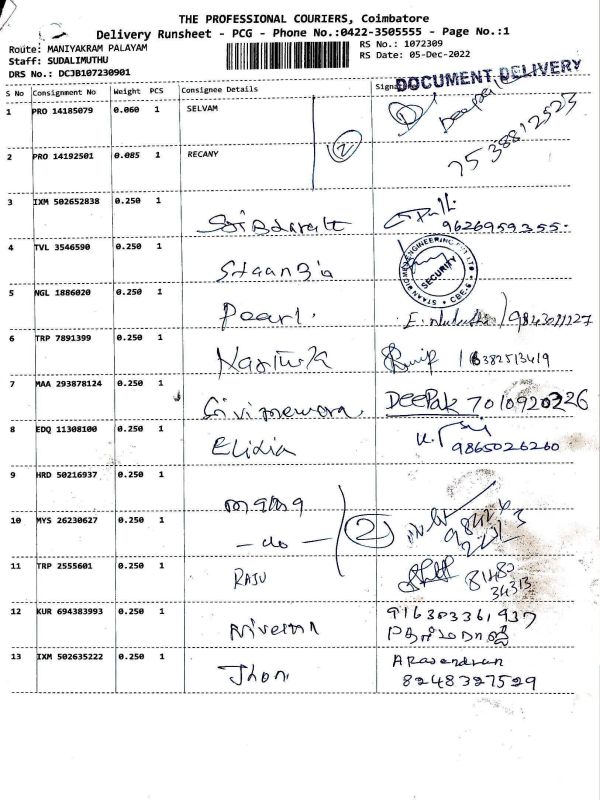 THE PROFESSIONAL COURIERS, Coimbatore
Delivery Runsheet - PCG - Phone No.:0422-3505555 - Page No.:1
Route: MANIYAKRAM PALAYAM
RS No.: 1072309
Staff: SUDALIMUTHU
RS Date: 05-Dec-2022
DRS No.: DCJB107230901
DOCUMENT DELIVERY
S No Consignment No Weight PCS Consignee Details
1 PRO 14185079 0.060 1 SELVAM
7538812523
2 PRO 14192501 0.085 1 RECANY
2
3 IXM 502652838 0.250 1
9626959355
4 TVL 3546590 0.250 1
SECURITY
5 NGL 1886020 0.250 1 Pearl.
6 TRP 7891399 0.250 1
6382513419
7 MAA 293878124 0.250 1 DEEPAK 7010920326
8 EDQ 11308100 0.250 1 Elidia
9865026260
9 HRD 50216937 0.250 1
10 MYS 26230627 0.250 1 - do - 2
11 TRP 2555601 0.250 1 RAJU
81480
34313
12 KUR 694383993 0.250 1
916303361937
13 IXM 502635222 0.250 1 Jhon
Aravendran
8248327529